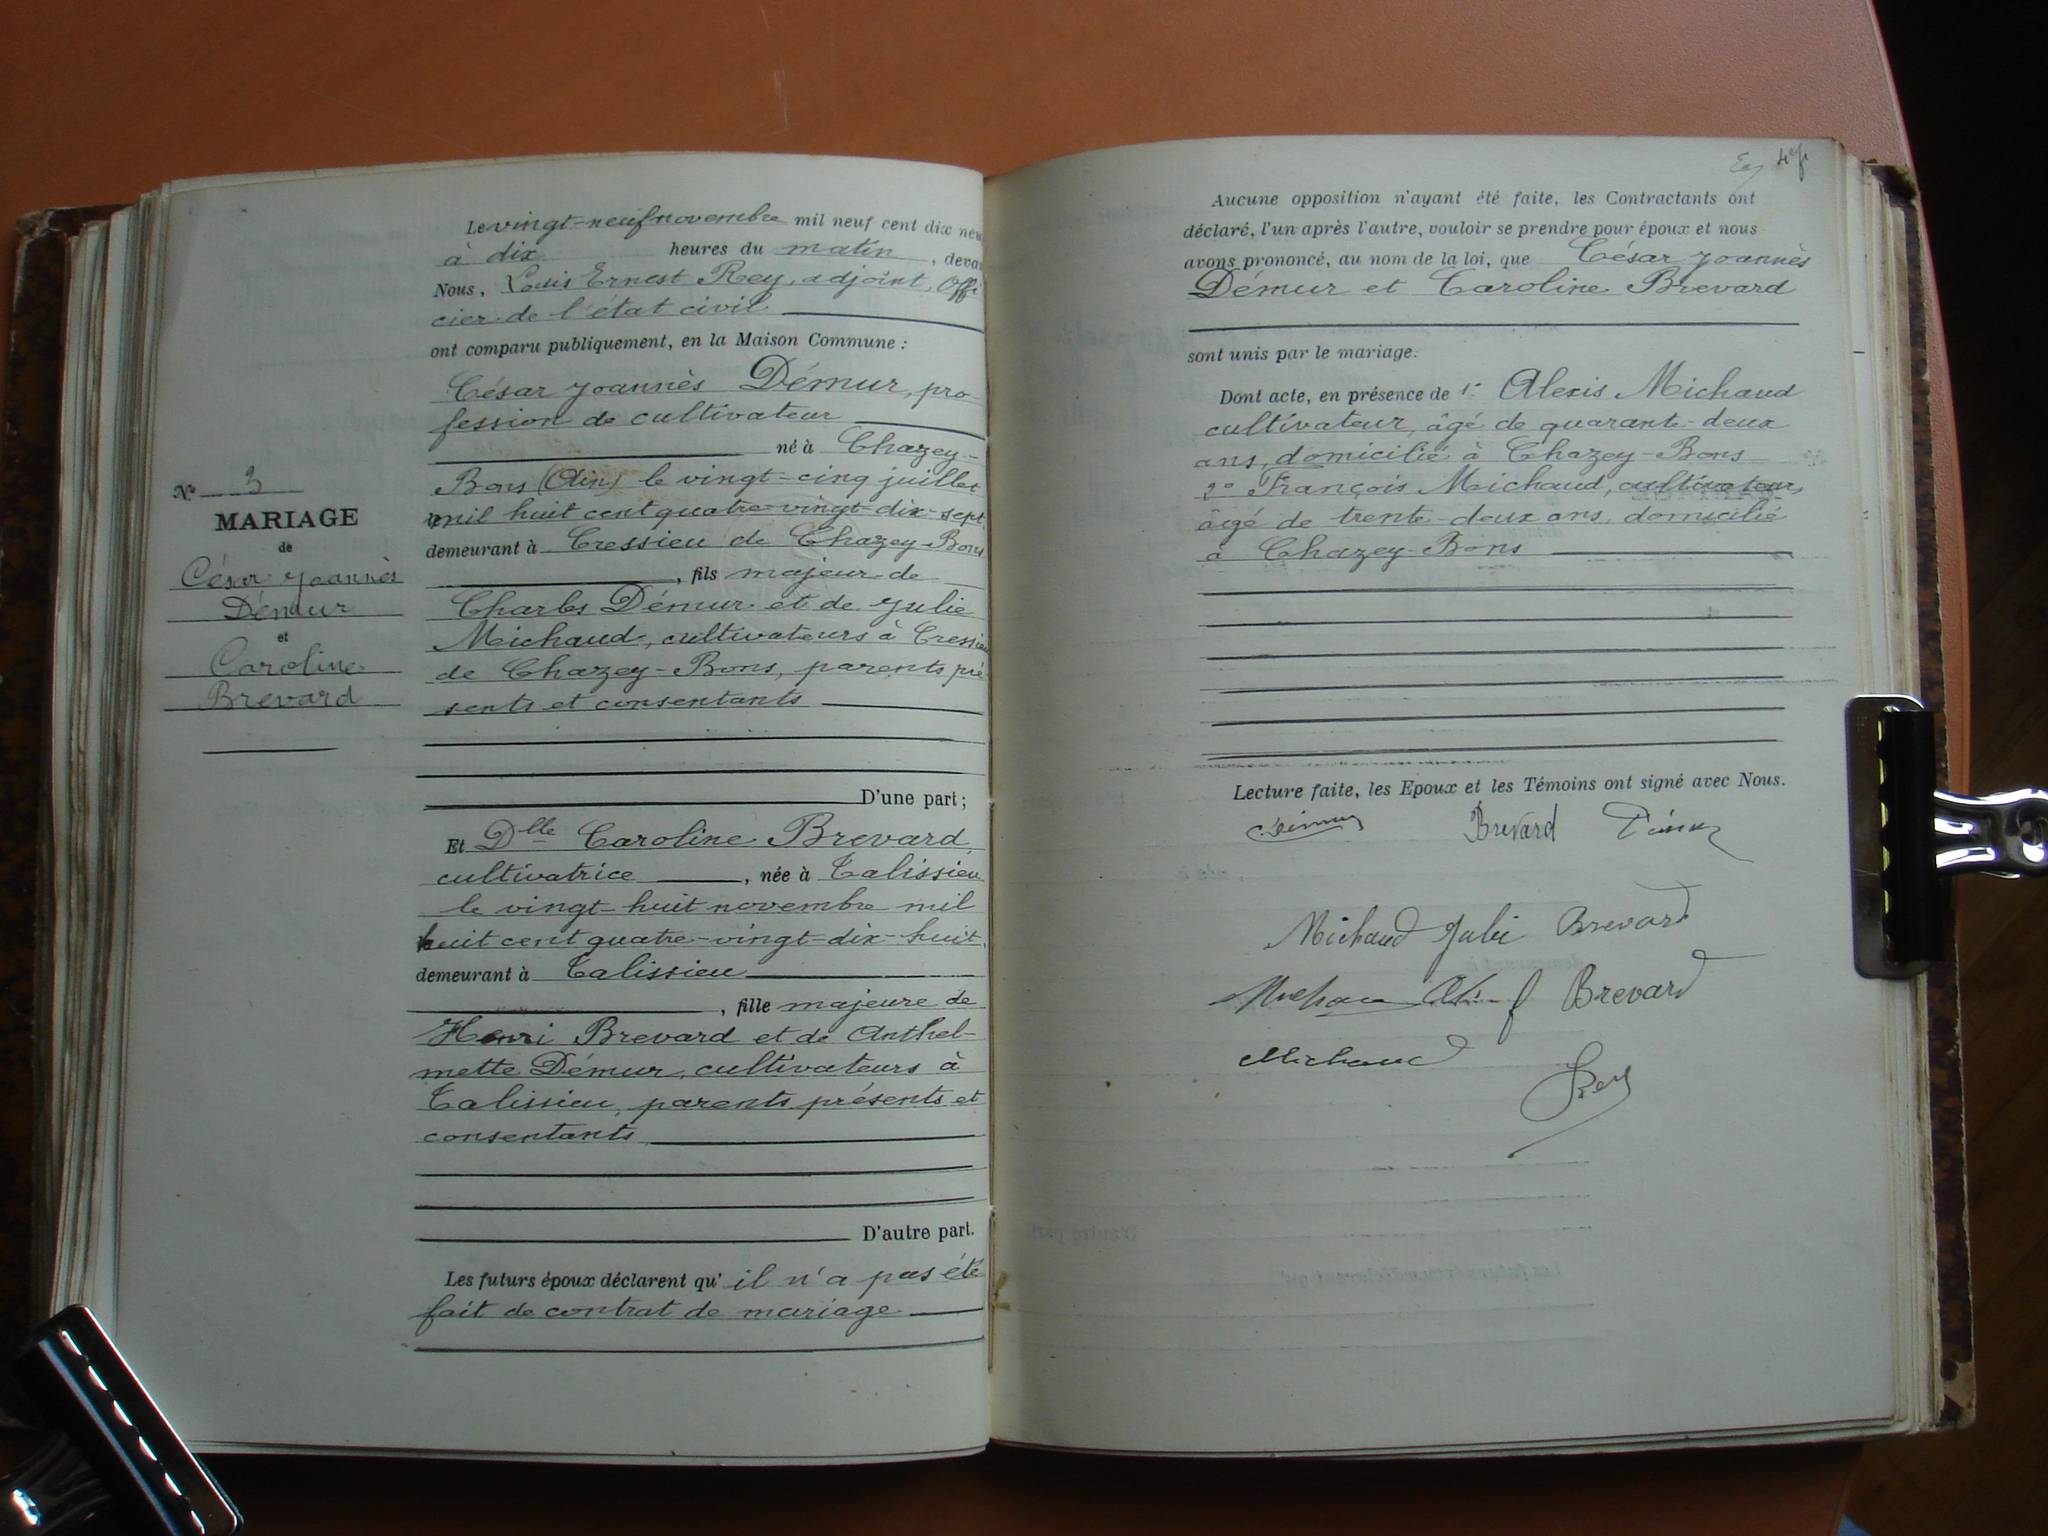 Nº 3
MARIAGE
de
César Joannès
Démur
et
Caroline
Brevard
Le vingt-neuf novembre mil neuf cent dix neu
à dix heures du matin, deva
Nous, Louis Ernest Rey, adjoint, Offi
cier de l'état civil
ont comparu publiquement, en la Maison Commune :
César Joannès Démur, pro-
fession de cultivateur
né à Chazey-
Bons (Ain) le vingt-cinq juillet
mil huit cent quatre-vingt-dix-sept,
demeurant à Cressieu de Chazey-Bons
, fils majeur de
Charles Démur et de Julie
Michaud, cultivateurs à Cressieu
de Chazey-Bons, parents pré-
sents et consentants
D'une part ;
Et Dlle Caroline Brevard,
cultivatrice, née à Talissieu
le vingt-huit novembre mil
huit cent quatre-vingt-dix-huit,
demeurant à Talissieu
, fille majeure de
Henri Brevard et de Anthel-
mette Démur, cultivateurs à
Talissieu, parents présents et
consentants
D'autre part.
Les futurs époux déclarent qu'il n'a pas été
fait de contrat de mariage
Aucune opposition n'ayant été faite, les Contractants ont
déclaré, l'un après l'autre, vouloir se prendre pour époux et nous
avons prononcé, au nom de la loi, que César Joannès
Démur et Caroline Brevard
sont unis par le mariage.
Dont acte, en présence de 1º Alexis Michaud
cultivateur, âgé de quarante-deux
ans, domicilié à Chazey-Bons
2º François Michaud, cultivateur,
âgé de trente-deux ans, domicilié
à Chazey-Bons
Lecture faite, les Epoux et les Témoins ont signé avec Nous.
Démur Brevard Démur
Michaud Julie Brevard
Brevard
Michaud
Rey